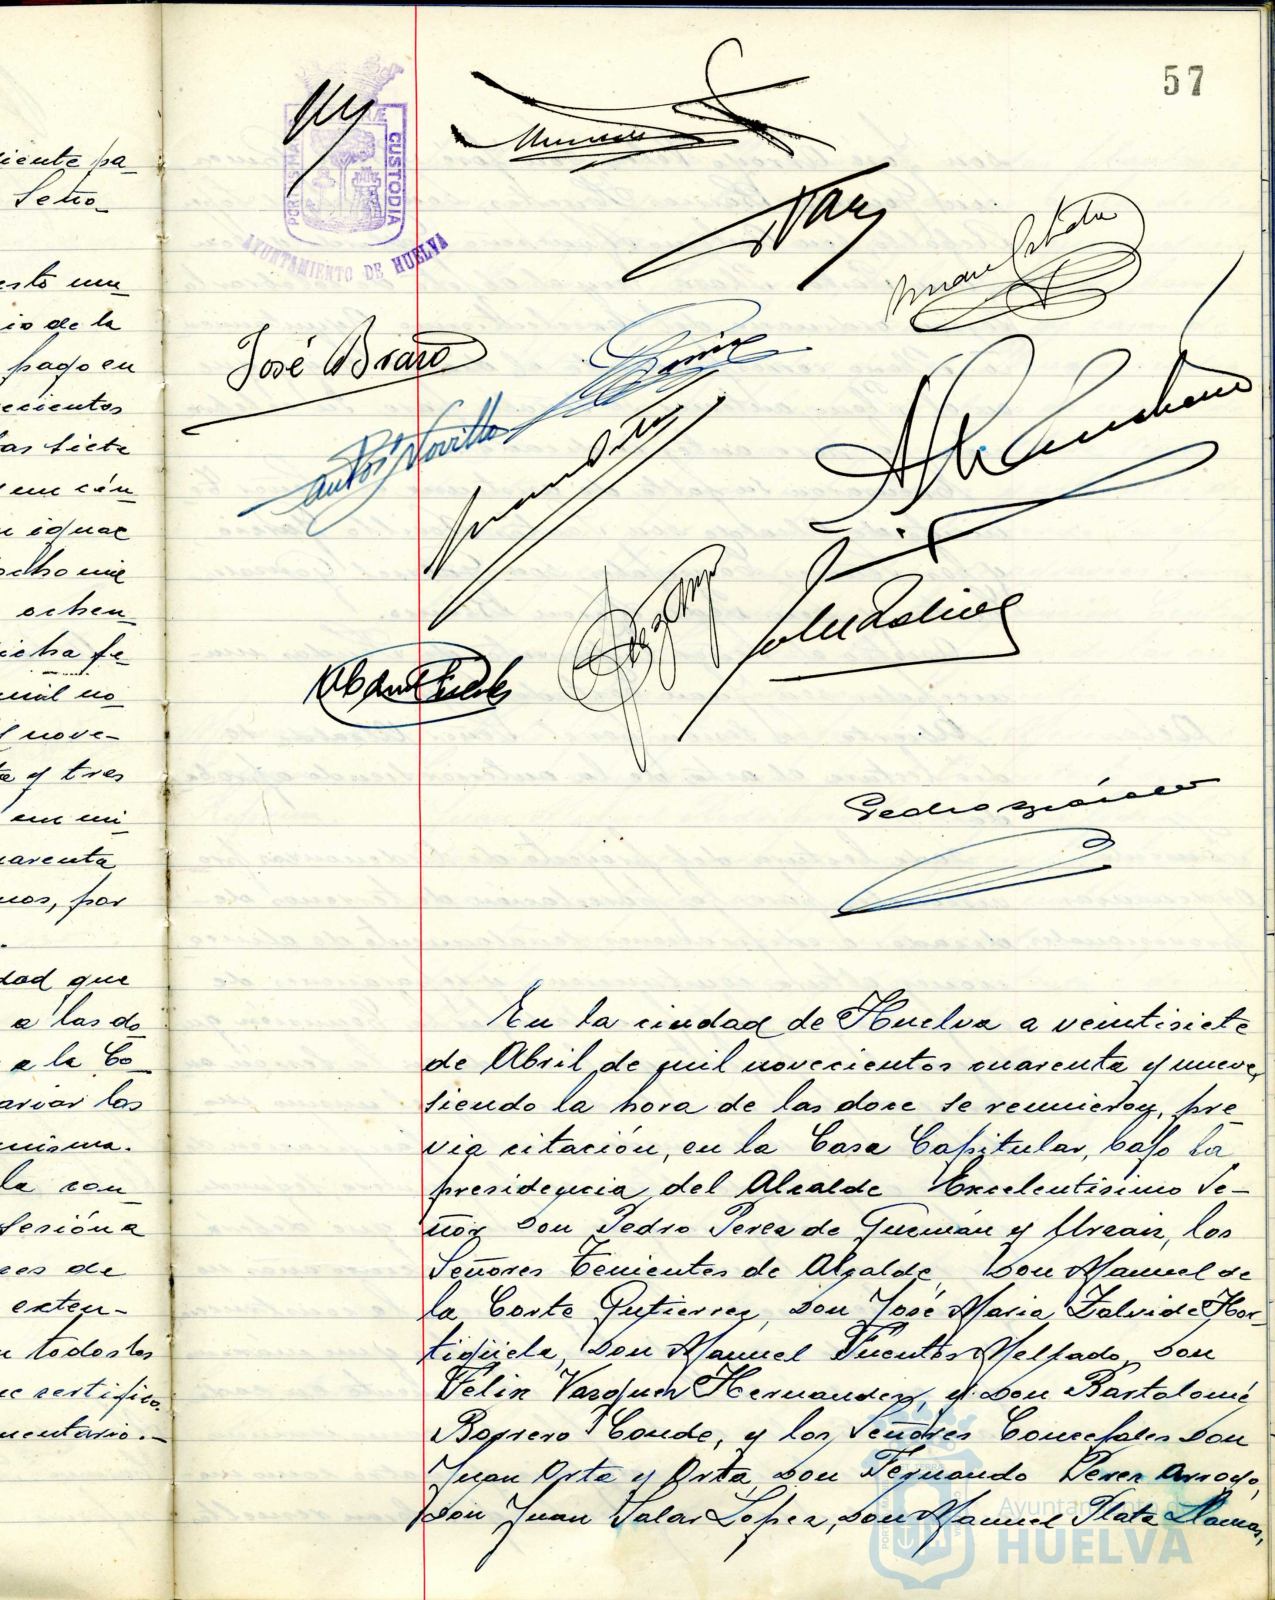 ciente pa-
Seño-
esto un-
io de la
pago en
ecientos
as siete
en cén-
n igual
ocho mil
ochen-
icha fe-
mil no
nove-
ta y tres
en mi-
uarenta
nos, por
dad que
a las do-
a la Co-
ariar los
misma.
la con-
sesión a
ces de
exten-
n todos los
ue certifico.
mentario.-
57
PORTUS MARIS
CUSTODIA
AYUNTAMIENTO DE HUELVA
José Bravo
En la ciudad de Huelva a veintisiete
de Abril de mil novecientos cuarenta y nueve,
siendo la hora de las doce se reunieron, pre-
via citación, en la Casa Capitular, bajo la
presidencia del Alcalde Excelentísimo Se-
ñor Don Pedro Perez de Guzmán y Urzaiz, los
Señores Tenientes de Alcalde, Don Manuel de
la Corte Gutierrez, Don José Maria Zalvide Hor-
tigüela, Don Manuel Fuentes Melfado, Don
Felix Vazquez Hernandez, y Don Bartolomé
Borrero Conde, y los Señores Concejales Don
Juan Orta y Orta, Don Fernando Perez Arroyo,
Don Juan Salas Lopez, Don Manuel Plata Llamas,
Ayuntamiento de
HUELVA